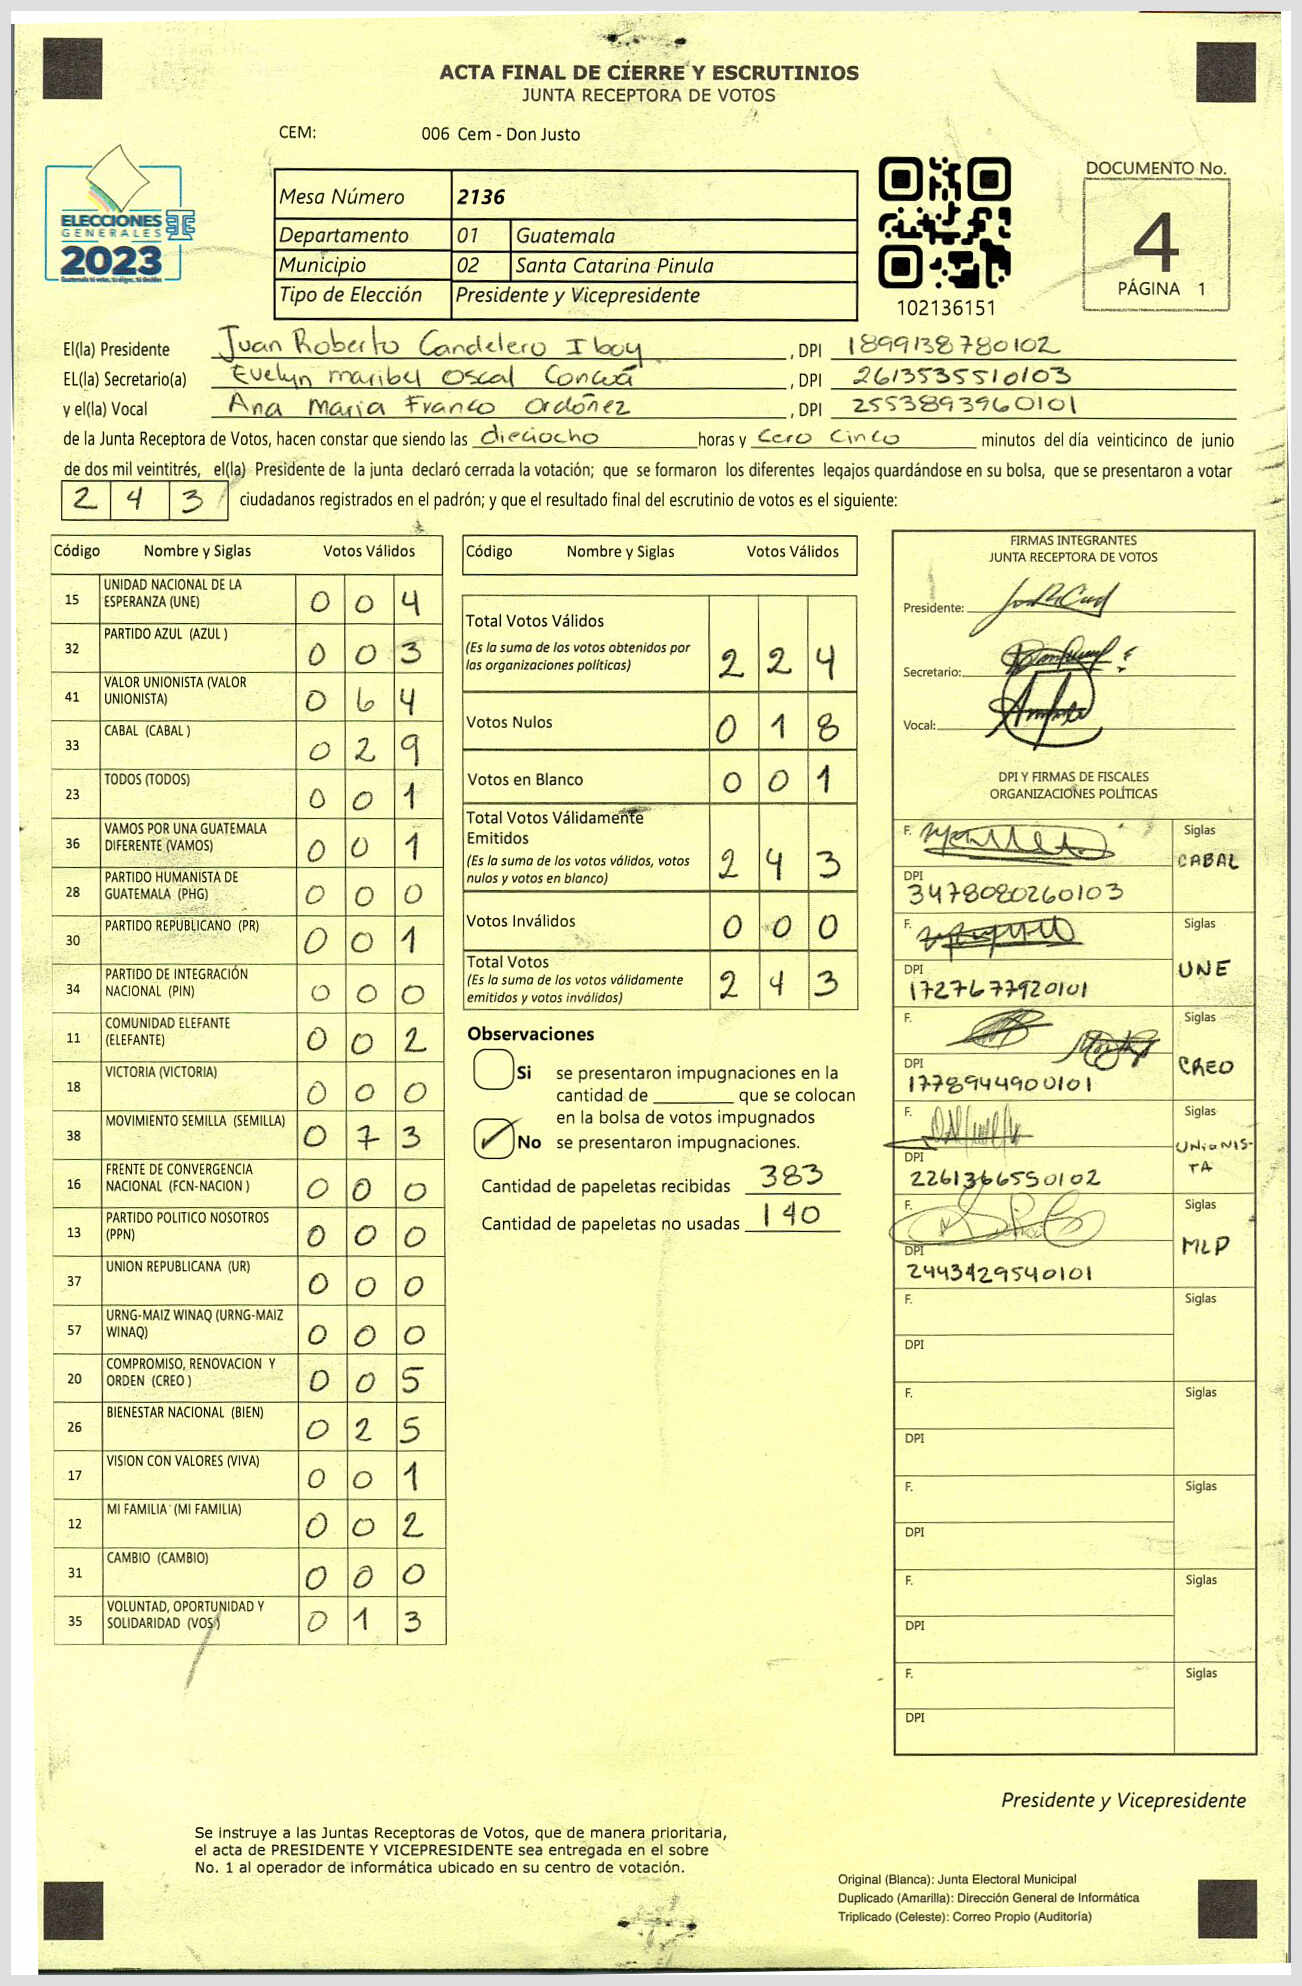 ACTA FINAL DE CIERRE Y ESCRUTINIOS
JUNTA RECEPTORA DE VOTOS
CEM: 006 Cem - Don Justo
ELECCIONES
GENERALES
2023
Mesa Número 2136
Departamento 01 Guatemala
Municipio 02 Santa Catarina Pinula
Tipo de Elección Presidente y Vicepresidente
102136151
DOCUMENTO No.
4
PÁGINA 1
El(la) Presidente Juan Roberto Candelero Iboy, DPI 1899138780102
EL(la) Secretario(a) Evelyn maribel Oscal Concuá, DPI 2613535510103
y el(la) Vocal Ana Maria Franco Ordóñez, DPI 2553893960101
de la Junta Receptora de Votos, hacen constar que siendo las dieciocho horas y Cero Cinco minutos del día veinticinco de junio
de dos mil veintitrés, el(la) Presidente de la junta declaró cerrada la votación; que se formaron los diferentes legajos guardándose en su bolsa, que se presentaron a votar
2 4 3 ciudadanos registrados en el padrón; y que el resultado final del escrutinio de votos es el siguiente:
Código Nombre y Siglas Votos Válidos
15 UNIDAD NACIONAL DE LA ESPERANZA (UNE) 0 0 4
32 PARTIDO AZUL (AZUL ) 0 0 3
41 VALOR UNIONISTA (VALOR UNIONISTA) 0 6 4
33 CABAL (CABAL ) 0 2 9
23 TODOS (TODOS) 0 0 1
36 VAMOS POR UNA GUATEMALA DIFERENTE (VAMOS) 0 0 1
28 PARTIDO HUMANISTA DE GUATEMALA (PHG) 0 0 0
30 PARTIDO REPUBLICANO (PR) 0 0 1
34 PARTIDO DE INTEGRACIÓN NACIONAL (PIN) 0 0 0
11 COMUNIDAD ELEFANTE (ELEFANTE) 0 0 2
18 VICTORIA (VICTORIA) 0 0 0
38 MOVIMIENTO SEMILLA (SEMILLA) 0 7 3
16 FRENTE DE CONVERGENCIA NACIONAL (FCN-NACION ) 0 0 0
13 PARTIDO POLITICO NOSOTROS (PPN) 0 0 0
37 UNION REPUBLICANA (UR) 0 0 0
57 URNG-MAIZ WINAQ (URNG-MAIZ WINAQ) 0 0 0
20 COMPROMISO, RENOVACION Y ORDEN (CREO ) 0 0 5
26 BIENESTAR NACIONAL (BIEN) 0 2 5
17 VISION CON VALORES (VIVA) 0 0 1
12 MI FAMILIA (MI FAMILIA) 0 0 2
31 CAMBIO (CAMBIO) 0 0 0
35 VOLUNTAD, OPORTUNIDAD Y SOLIDARIDAD (VOS) 0 1 3
Código Nombre y Siglas Votos Válidos
Total Votos Válidos
(Es la suma de los votos obtenidos por
las organizaciones políticas) 2 2 4
Votos Nulos 0 1 8
Votos en Blanco 0 0 1
Total Votos Válidamente
Emitidos
(Es la suma de los votos válidos, votos
nulos y votos en blanco) 2 4 3
Votos Inválidos 0 0 0
Total Votos
(Es la suma de los votos válidamente
emitidos y votos inválidos) 2 4 3
Observaciones
Si se presentaron impugnaciones en la
cantidad de ________ que se colocan
en la bolsa de votos impugnados
No se presentaron impugnaciones.
Cantidad de papeletas recibidas 383
Cantidad de papeletas no usadas 140
FIRMAS INTEGRANTES
JUNTA RECEPTORA DE VOTOS
Presidente:
Secretario:
Vocal:
DPI Y FIRMAS DE FISCALES
ORGANIZACIONES POLÍTICAS
F. Siglas
CABAL
DPI
3478080260103
F. Siglas
UNE
DPI
1727677920101
F. Siglas
CREO
DPI
1778944900101
F. Siglas
UNIONIS-
TA
DPI
2261366550102
F. Siglas
MLP
DPI
2443429540101
F. Siglas
DPI
F. Siglas
DPI
F. Siglas
DPI
F. Siglas
DPI
F. Siglas
DPI
Presidente y Vicepresidente
Se instruye a las Juntas Receptoras de Votos, que de manera prioritaria,
el acta de PRESIDENTE Y VICEPRESIDENTE sea entregada en el sobre
No. 1 al operador de informática ubicado en su centro de votación.
Original (Blanca): Junta Electoral Municipal
Duplicado (Amarilla): Dirección General de Informática
Triplicado (Celeste): Correo Propio (Auditoría)